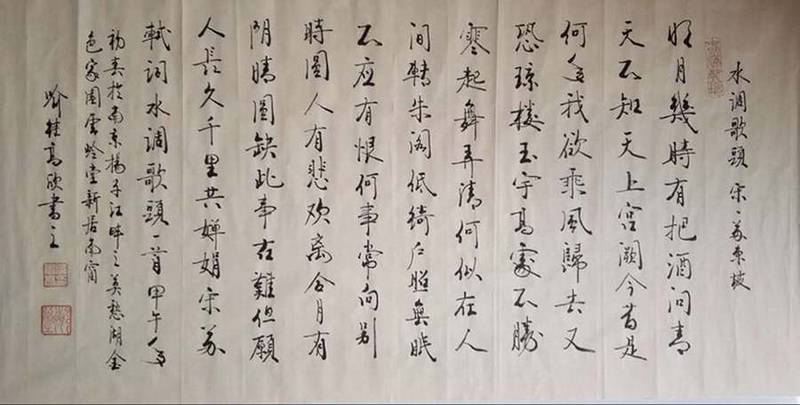 水调歌頭 宋·苏东坡
明月幾時有把酒问青
天不知天上宫阙今昔是
何年我欲乘风歸去又
恐琼楼玉宇高處不勝
寒起舞弄清何似在人
间轉朱阁低绮户照無眠
不应有恨何事常向别
時圆人有悲欢离合月有
阴晴圆缺此事在難但願
人長久千里共婵娟宋苏
軾词水调歌頭一首甲午年
初春於南京揚子江畔之莫愁湖金
色家园雲岭堂新居南窗
桂高欣書之